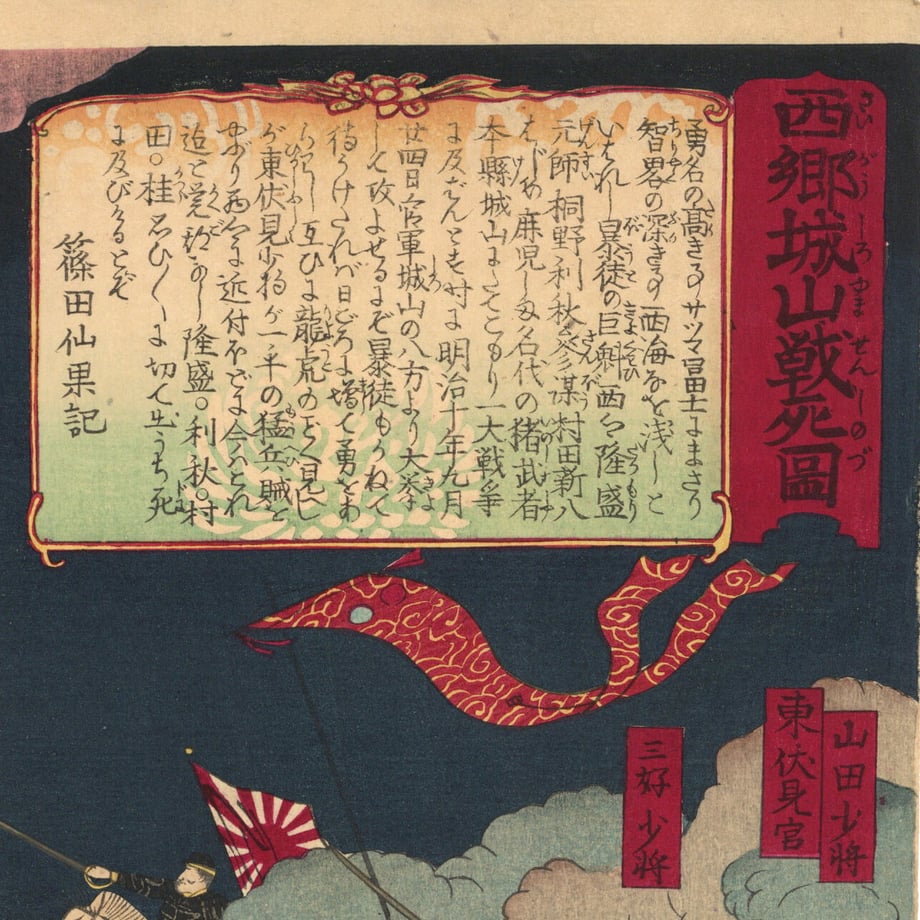 西郷城山戦死圖
さいがうしろやませんしのづ
勇名の高きハサツマ冨士にまさり
智畧の深きハ西海なを浅しと
いはれし暴徒の巨魁西郷隆盛
元師桐野利秋参謀村田新八
はじめ麻児しま名代の猪武者
本縣城山にたてこもり一大戦争
に及ばんとす于時明治十年九月
廿四日官軍城山の八方より大挙
して攻よせるにぞ暴徒もかねて
待うけたれバ日ごろに増て勇をあ
らハし互ひに龍虎のごとく見へし
が東伏見少将が一手の猛兵賊を
やぶり
近付ほどに今ハとれ
迄と覚期なし隆盛。利秋。村
田。桂
に切て出うち死
に及びけるとぞ
篠田仙果記
山田少将
東伏見宮
三好少将